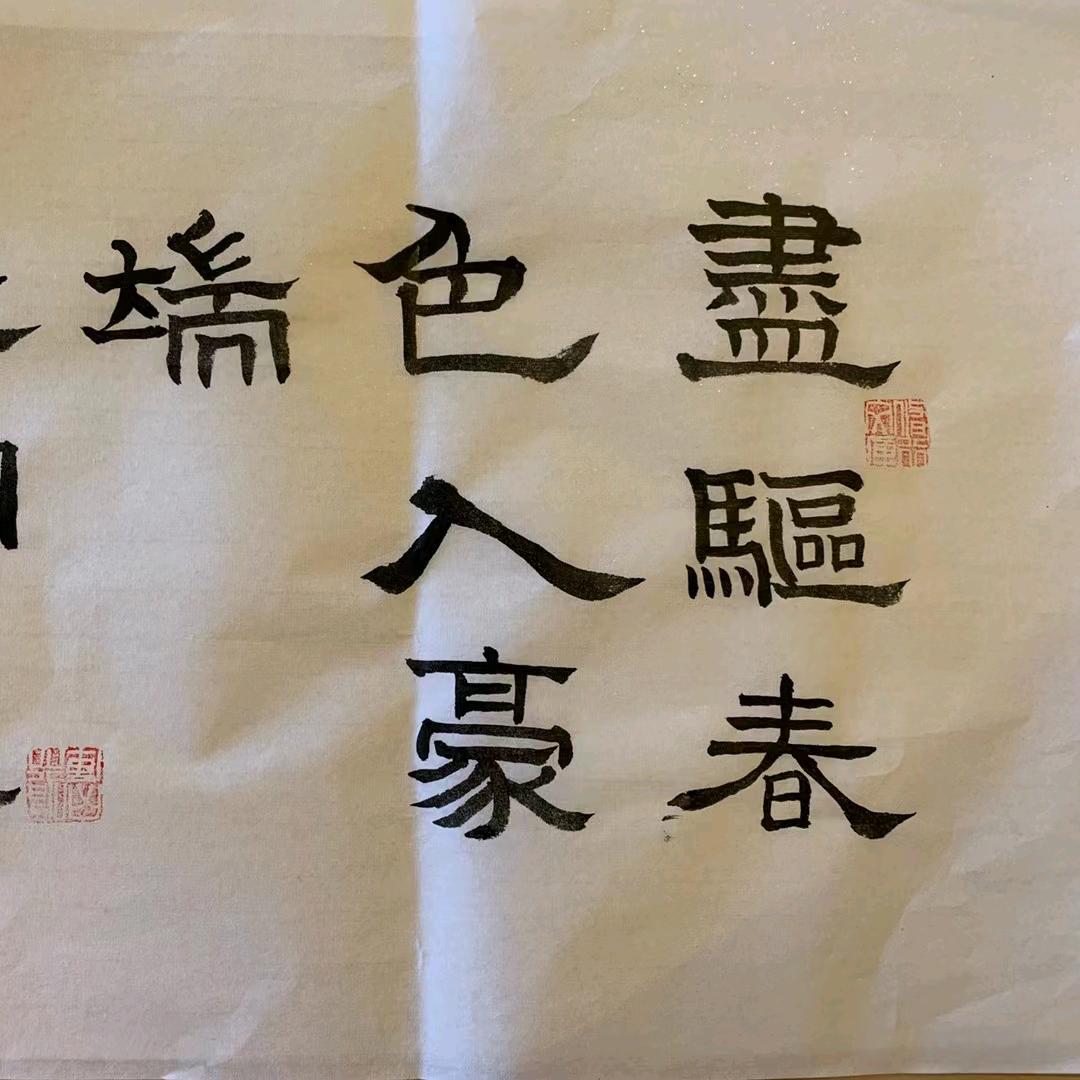 盡驅春
色入豪
端